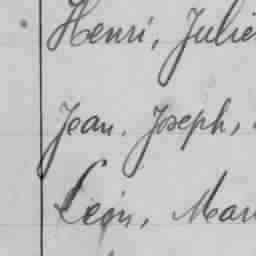 Henri, Julie
Jean. Joseph,
Léon, Mar